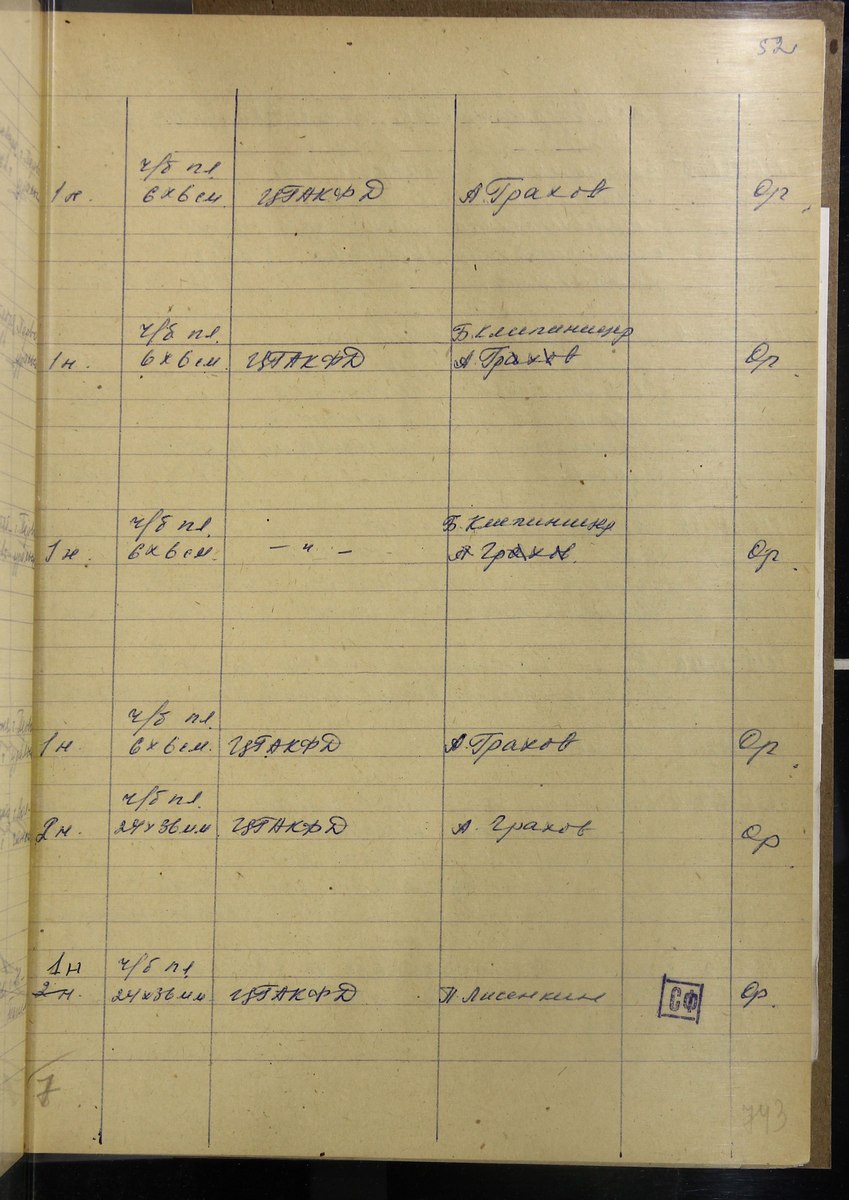 52
ч/б пл
1 н. 6 х 6 см. ЦГАКФД А. Грахов Ор
ч/б пл. Б. Клипиницер
1 н. 6 х 6 см ЦГАКФД А Грахов Ор
ч/б пл. Б. Клипиницер
1 н. 6 х 6 см. — " — А Грахов. Ор
ч/б пл.
1 н. 6 х 6 см. ЦГАКФД А. Грахов Ор
ч/б пл.
2 н. 24 х 36 мм ЦГАКФД А. Грахов Ор
1 н ч/б пл
2 н. 24 х 36 мм ЦГАКФД П Лисенкин СФ Ор.
7
743